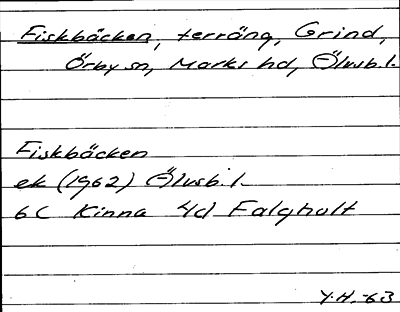 Fiskbäcken, terräng, Grind,
Örby sn, Marks hd, Älvsb.l.
Fiskbäcken
ek (1962) Älvsb.l.
6C Kinna 4d Falghult
Y.H.-63